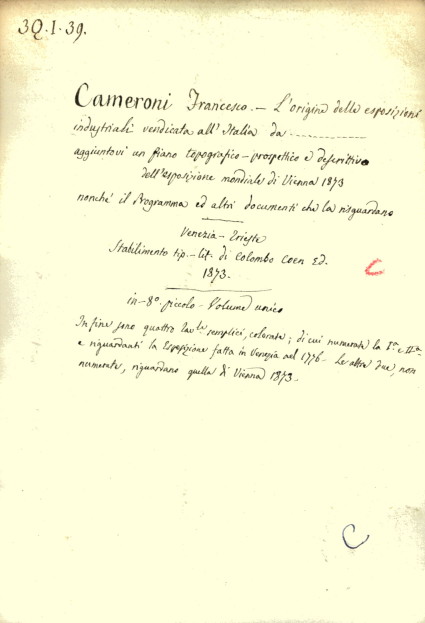 3Q.1.39.
Cameroni Francesco. — L'origine delle esposizioni
industriali vendicata all'Italia da
aggiuntovi un piano topografico-prospettico e descrittivo
dell'esposizione mondiale di Vienna 1873
nonché il Programma ed altri documenti che la risguardano
Venezia - Trieste
Stabilimento tip.-lit. di Colombo Coen Ed.
1873.
in-8.° piccolo - Volume unico
In fine sono quattro tavole semplici, colorate; di cui numerate la I.a e II.a
e riguardanti la Esposizione fatta in Venezia nel 1776 - Le altre due, non
numerate, riguardano quella di Vienna 1873.
C
C